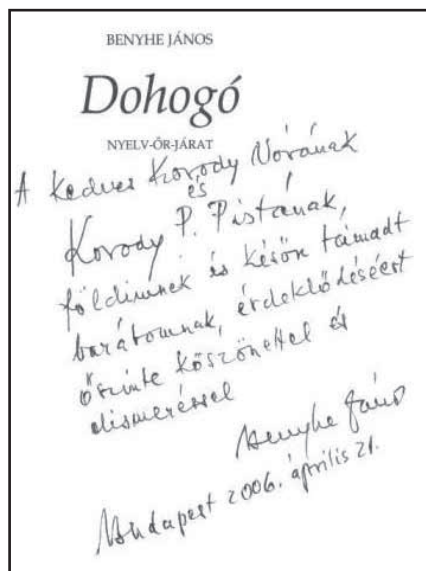 BENYHE JÁNOS
Dohogó
NYELV-ŐR-JÁRAT
A kedves Korody Nórának
és
Korody P. Pistának,
földimnek és későn támadt
barátomnak, érdeklődéséért
őszinte köszönettel és
elismeréssel
Benyhe János
Budapest 2006. április 21.